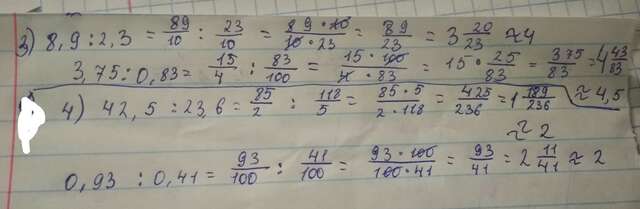 3) 8,9 : 2,3 = 89/10 : 23/10 = 89·10/10·23 = 89/23 = 3 20/23 ≈ 4
3,75 : 0,83 = 15/4 : 83/100 = 15·100/4·83 = 15·25/83 = 375/83 = 4 43/83
≈ 4,5
4) 42,5 : 23,6 = 85/2 : 118/5 = 85·5/2·118 = 425/236 = 1 189/236
≈ 2
0,93 : 0,41 = 93/100 : 41/100 = 93·100/100·41 = 93/41 = 2 11/41 ≈ 2